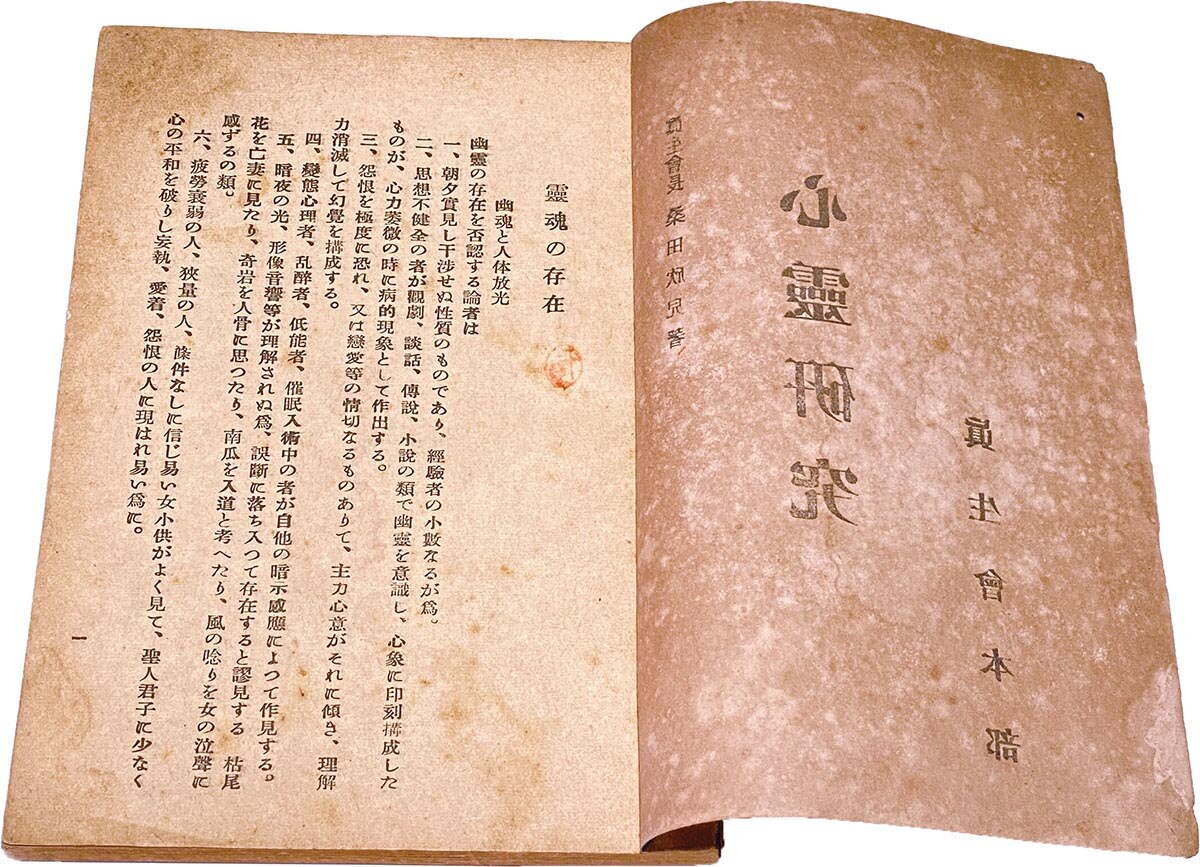 眞生會長 桑田欣兒著
心靈研究
眞生會本部
靈魂の存在
幽魂と人体放光
幽靈の存在を否認する論者は
一、朝夕實見し干涉せぬ性質のものであり、經驗者の小數なるが爲。
二、思想不健全の者が觀劇、談話、傳說、小說の類で幽靈を意識し、心象に印刻搆成した
ものが、心力萎微の時に病的現象として作出する。
三、怨恨を極度に恐れ、又は戀愛等の情切なるものありて、主力心意がそれに傾き、理解
力消滅して幻覺を搆成する。
四、變態心理者、乱醉者、低能者、催眠入術中の者が自他の暗示感應によつて作見する。
五、暗夜の光、形像音響等が理解されぬ爲、誤斷に落ち入つて存在すると謬見する 枯尾
花を亡妻に見たり、奇岩を人骨に思つたり、南瓜を入道と考へたり、風の唸りを女の泣聲に
感ずるの類。
六、疲勞衰弱の人、狹量の人、條件なしに信じ易い女小供がよく見て、聖人君子に少なく
心の平和を破りし妄執、愛着、怨恨の人に現はれ易い爲に。
一